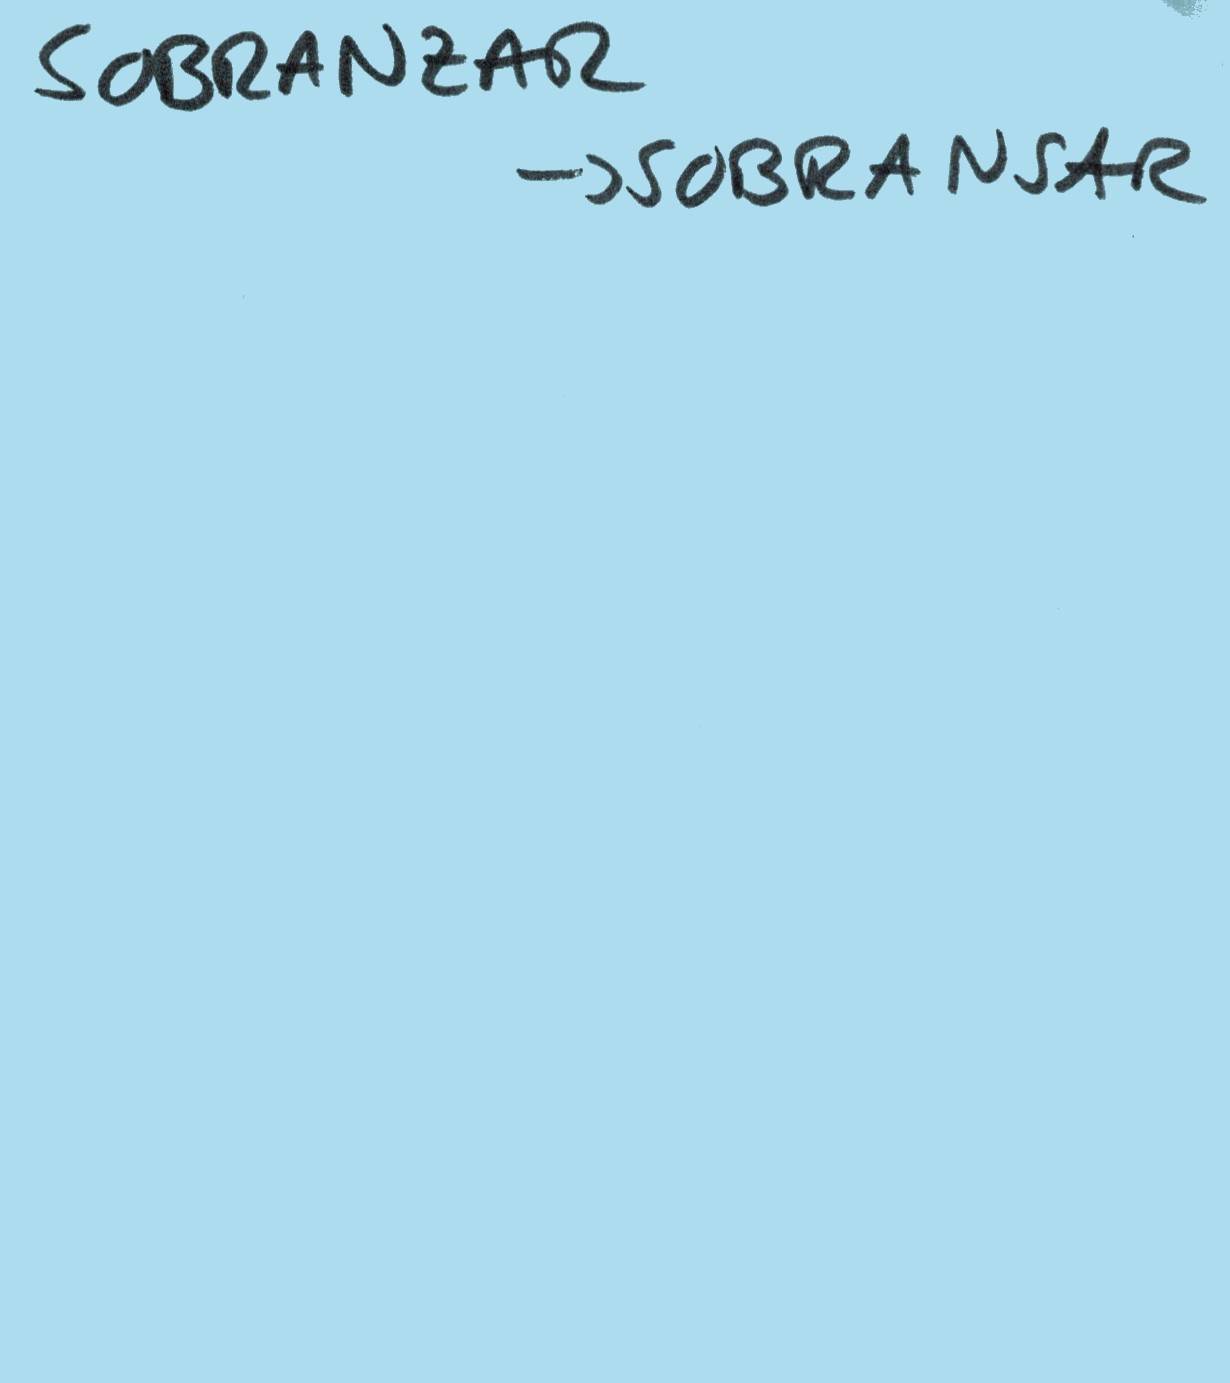 SOBRANZAR
→SOBRANSAR